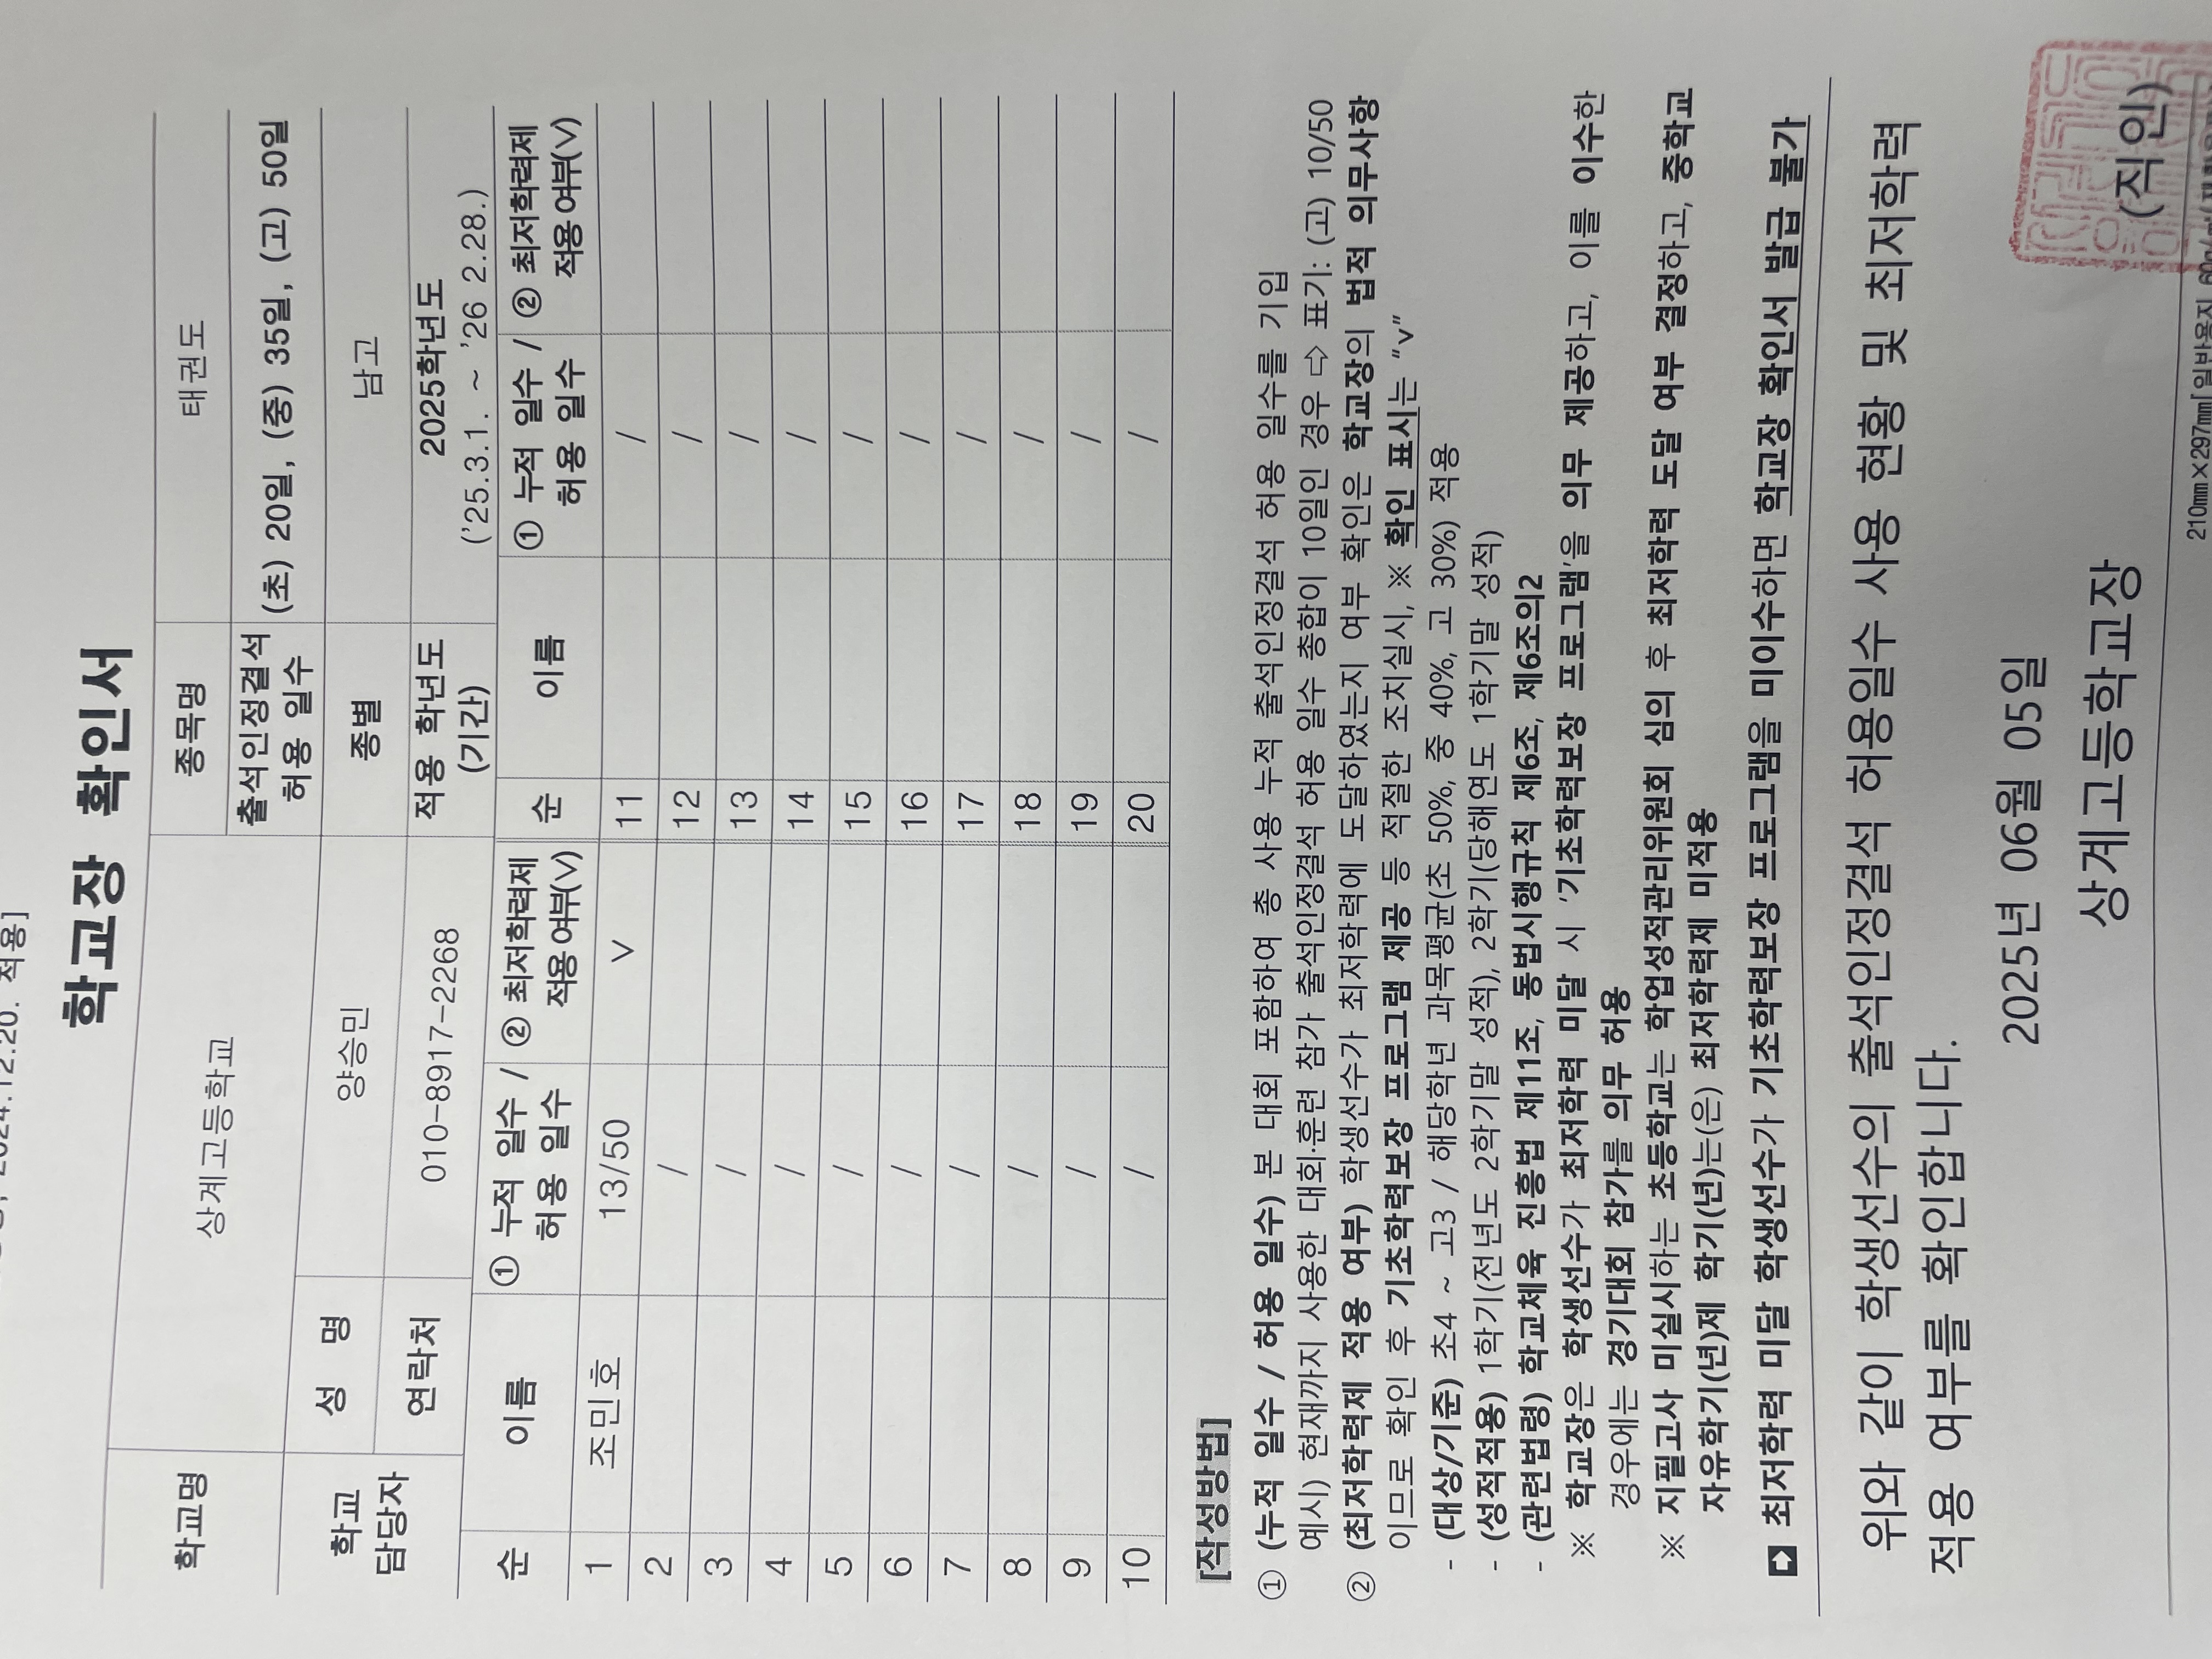 2024.12.20. 적용]
학교장 확인서
학교명 상계고등학교 종목명 태권도
출석인정결석 허용 일수 (초) 20일, (중) 35일, (고) 50일
학교 담당자 성 명 양승민 종별 남고
연락처 010-8917-2268 적용 학년도 (기간) 2025학년도 ('25.3.1. ~ '26 2.28.)
순 이름 ① 누적 일수 / 허용 일수 ② 최저학력제 적용 여부(∨) 순 이름 ① 누적 일수 / 허용 일수 ② 최저학력제 적용 여부(∨)
1 조민호 13/50 ∨ 11 /
2 / 12 /
3 / 13 /
4 / 14 /
5 / 15 /
6 / 16 /
7 / 17 /
8 / 18 /
9 / 19 /
10 / 20 /
[작성방법]
① (누적 일수 / 허용 일수) 본 대회 포함하여 총 사용 누적 출석인정결석 허용 일수를 기입
예시) 현재까지 사용한 대회·훈련 참가 출석인정결석 허용 일수 총합이 10일인 경우 ⇨ 표기: (고) 10/50
② (최저학력제 적용 여부) 학생선수가 최저학력에 도달하였는지 여부 확인은 학교장의 법적 의무사항
이므로 확인 후 기초학력보장 프로그램 제공 등 적절한 조치실시, ※ 확인 표시는 “v”
- (대상/기준) 초4 ~ 고3 / 해당학년 과목평균(초 50%, 중 40%, 고 30%) 적용
- (성적적용) 1학기(전년도 2학기말 성적), 2학기(당해연도 1학기말 성적)
- (관련법령) 학교체육 진흥법 제11조, 동법시행규칙 제6조, 제6조의2
※ 학교장은 학생선수가 최저학력 미달 시 '기초학력보장 프로그램'을 의무 제공하고, 이를 이수한
경우에는 경기대회 참가를 의무 허용
※ 지필고사 미실시하는 초등학교는 학업성적관리위원회 심의 후 최저학력 도달 여부 결정하고, 중학교
자유학기(년)제 학기(년)는(은) 최저학력제 미적용
➡ 최저학력 미달 학생선수가 기초학력보장 프로그램을 미이수하면 학교장 확인서 발급 불가
위와 같이 학생선수의 출석인정결석 허용일수 사용 현황 및 최저학력
적용 여부를 확인합니다.
2025년 06월 05일
상계고등학교장 (직인)
210㎜×297㎜[일반용지 60g/㎡